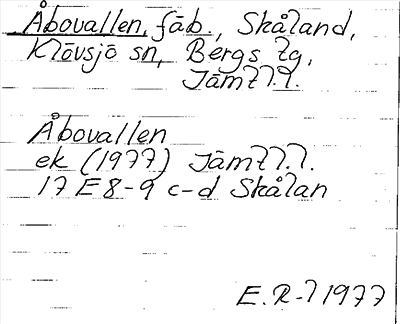 Åbovallen, fäb, Skåland,
Klövsjö sn, Bergs tg,
Jämtl.l.
Åbovallen
ek (1977) Jämtl.l.
17 E 8-9 c-d Skålan
E.R-l 1977